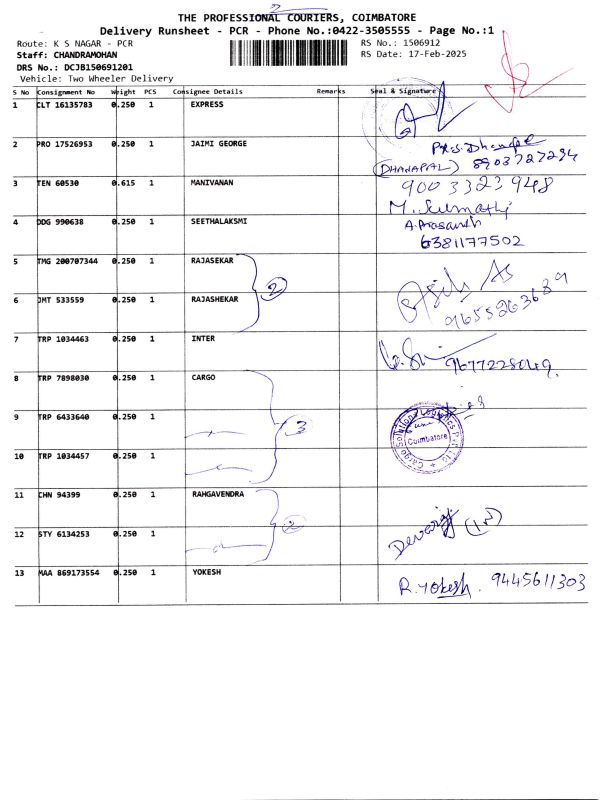 THE PROFESSIONAL COURIERS, COIMBATORE
Delivery Runsheet - PCR - Phone No.:0422-3505555 - Page No.:1
Route: K S NAGAR - PCR RS No.: 1506912
Staff: CHANDRAMOHAN RS Date: 17-Feb-2025
DRS No.: DCJB150691201
Vehicle: Two Wheeler Delivery
S No Consignment No Weight PCS Consignee Details Remarks Seal & Signature
1 CLT 16135783 0.250 1 EXPRESS
2 PRO 17526953 0.250 1 JAIMI GEORGE
(DHANAPAL) 8903727234
3 TEN 60530 0.615 1 MANIVANAN 900 3323948
M. Sumathi
4 DDG 990638 0.250 1 SEETHALAKSMI A. Prasanth
6381177502
5 TMG 200707344 0.250 1 RAJASEKAR
2
6 JMT 533559 0.250 1 RAJASHEKAR 9655263689
7 TRP 1034463 0.250 1 INTER 9677228049.
8 TRP 7898030 0.250 1 CARGO
9 TRP 6433640 0.250 1 3
Cargo Solution Logistics Pvt Ltd
Coimbatore
10 TRP 1034457 0.250 1
11 CHN 94399 0.250 1 RAHGAVENDRA
2
12 STY 6134253 0.250 1 Devaraj
13 MAA 869173554 0.250 1 YOKESH R. Yokesh. 9445611303